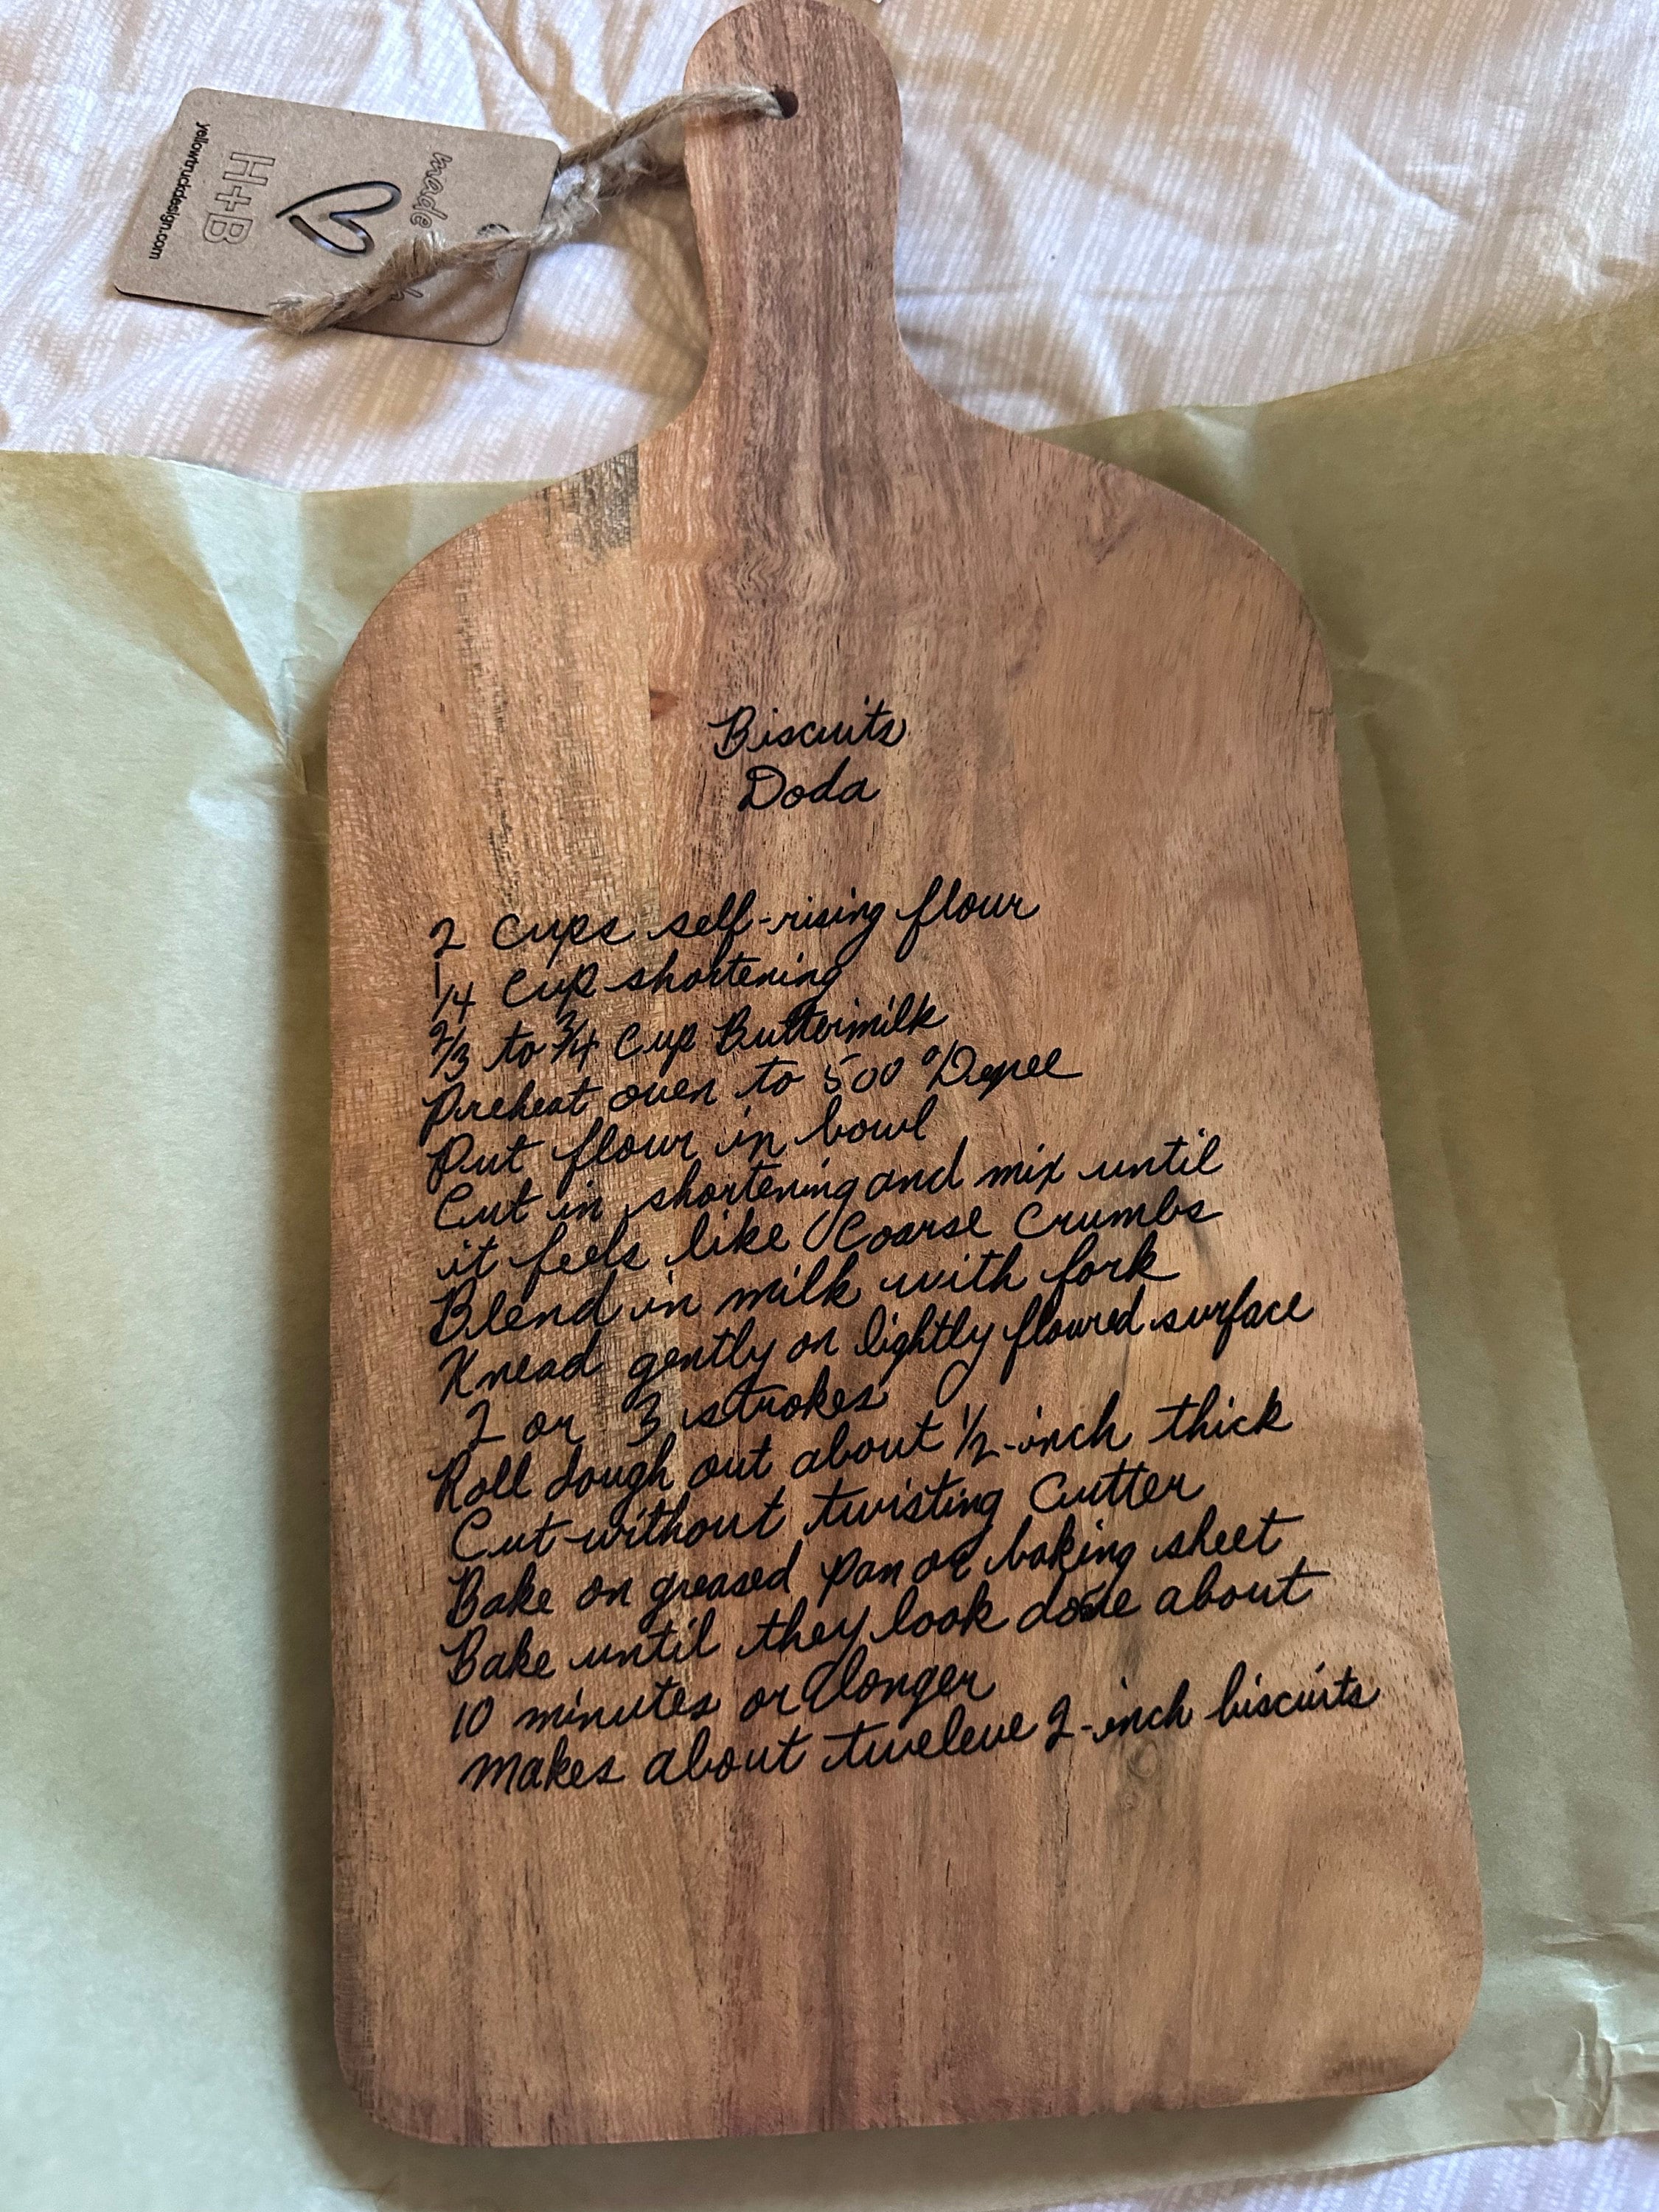 made
H+B
yellowtruckdesign.com
Biscuits
Doda
2 Cups self-rising flour
1/4 Cup shortening
2/3 to 3/4 Cup Buttermilk
Preheat oven to 500° Degree
Put flour in bowl
Cut in shortening and mix until
it feels like Coarse Crumbs
Blend in milk with fork
Knead gently on lightly floured surface
2 or 3 strokes
Roll dough out about 1/2-inch thick
Cut without twisting Cutter
Bake on greased pan or baking sheet
Bake until they look done about
10 minutes or longer
makes about tweleve 2-inch biscuits